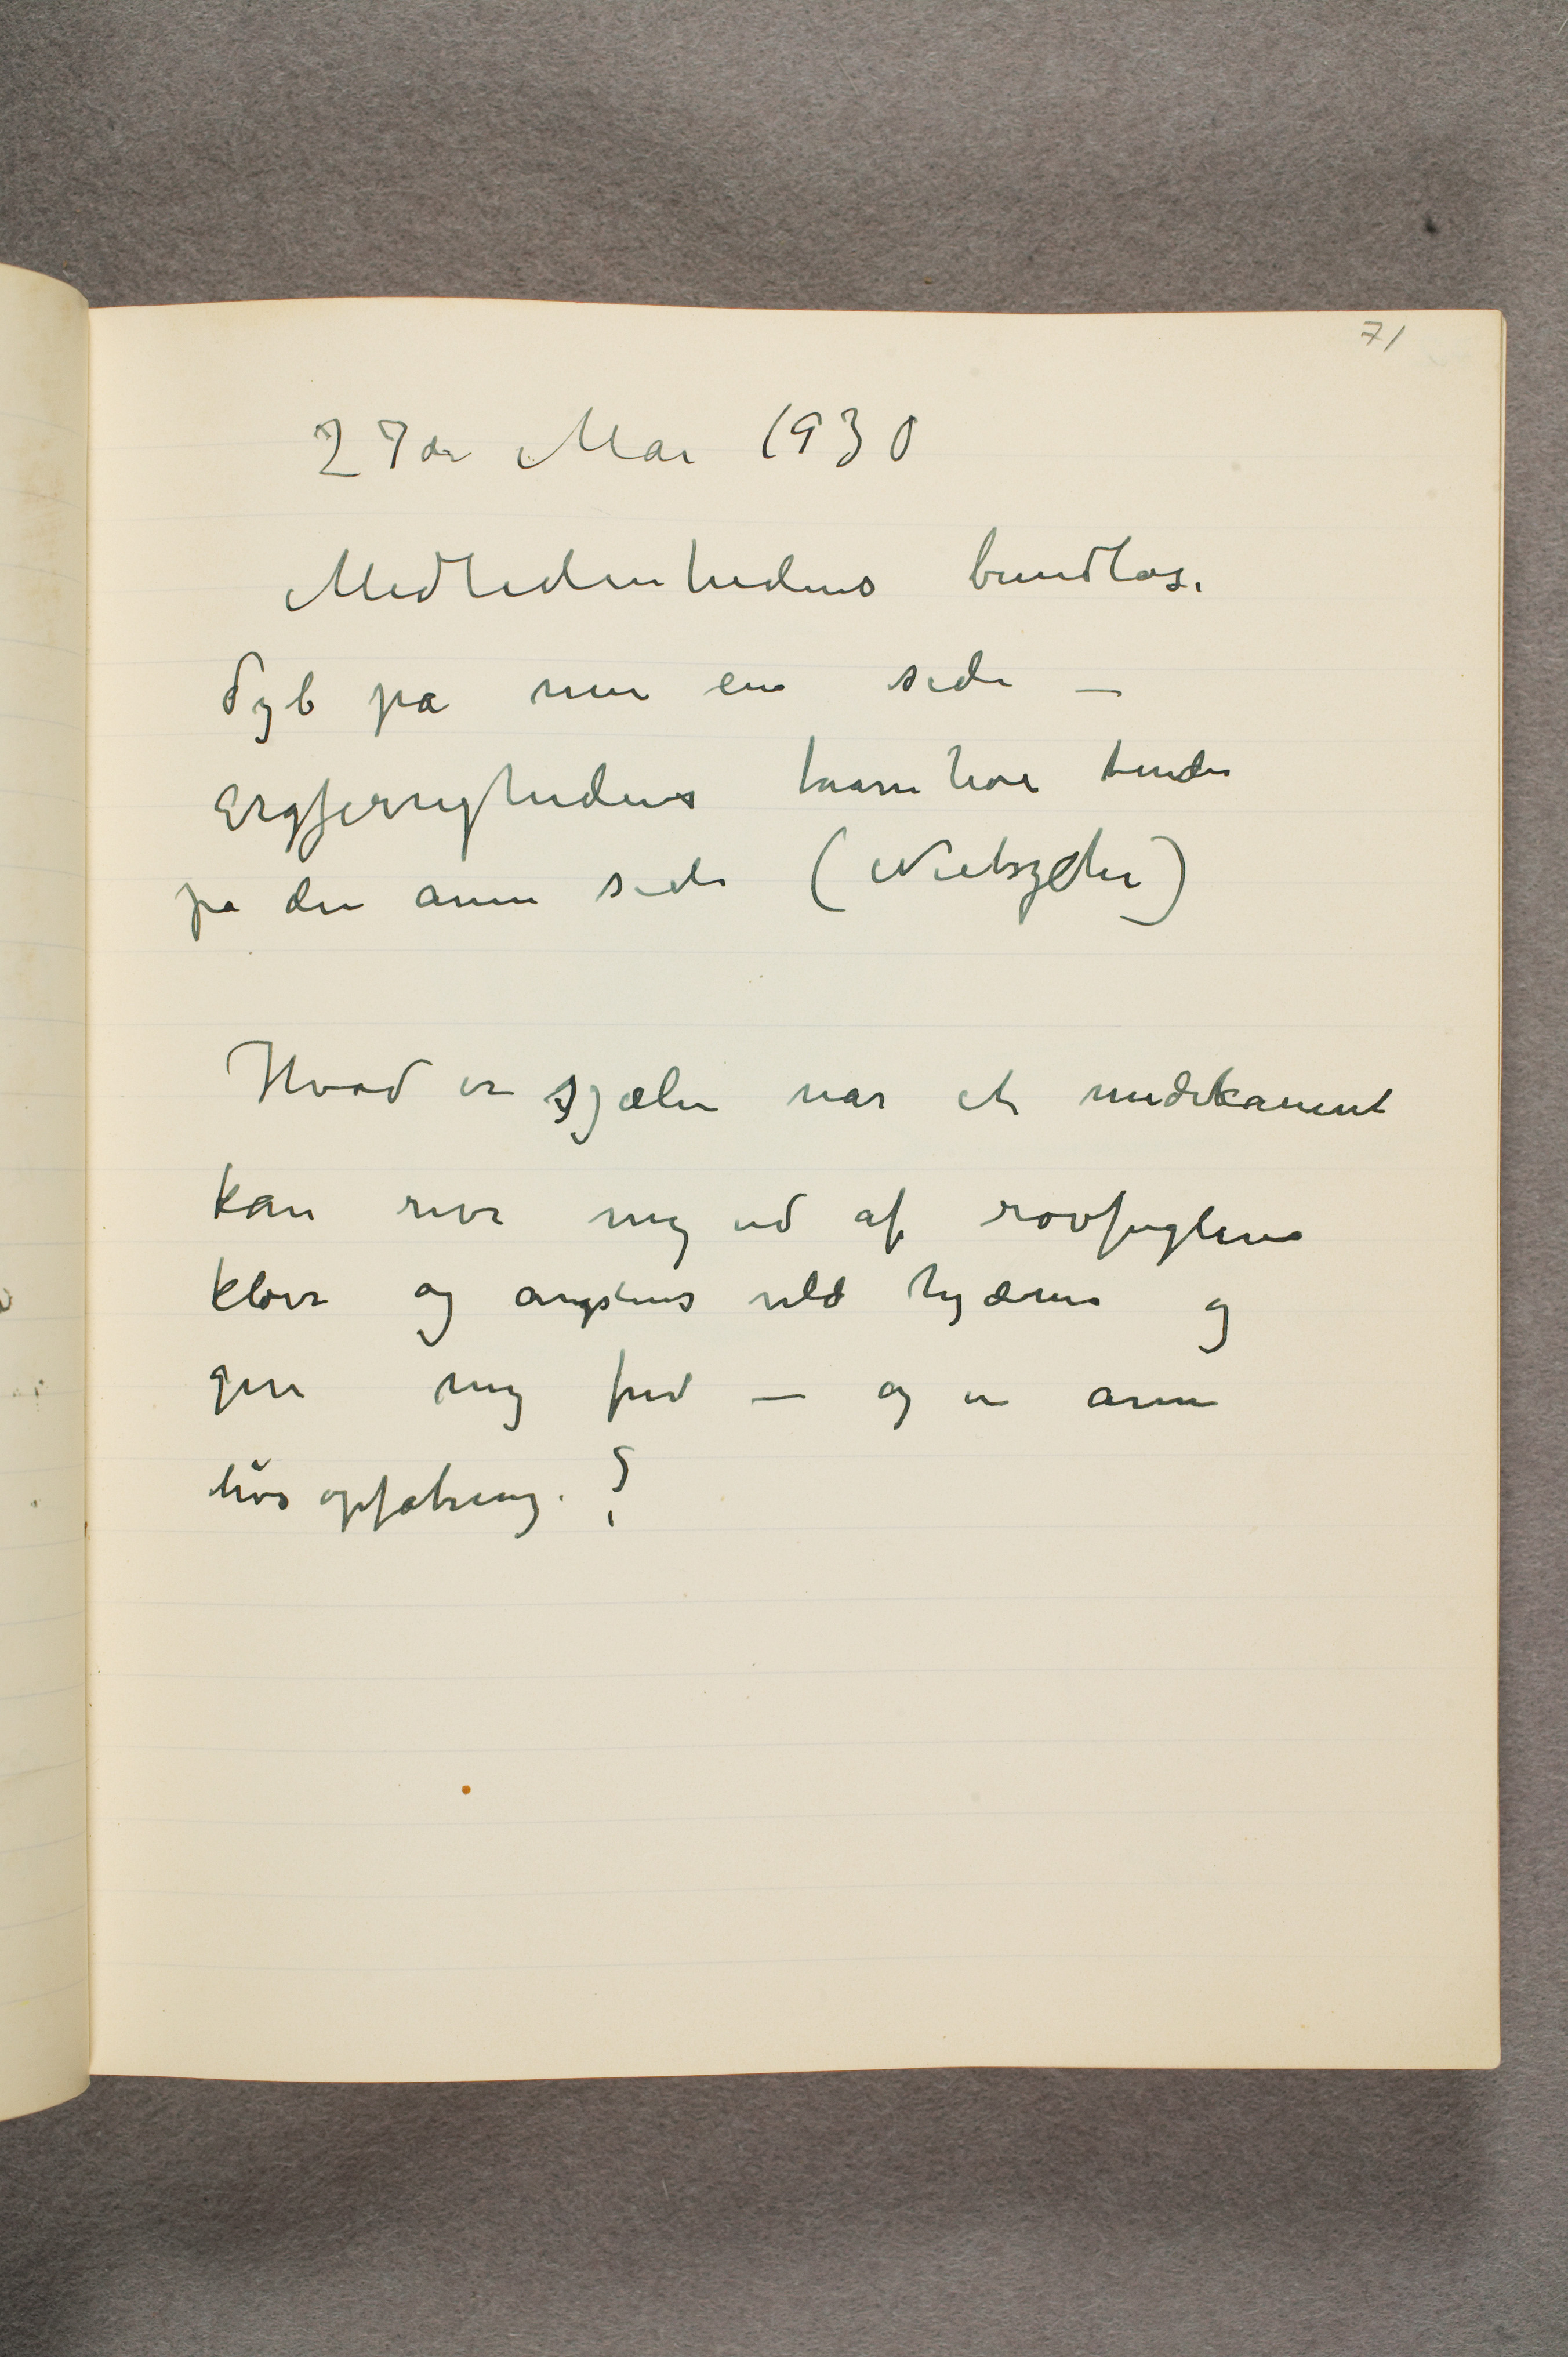 71
27de Mai 1930
Medlidenhedens bundløse
dyb på min ene side —
Ergjerrighedens taarnhøie tinder
på den anne side (Nietszche)
Hvad er sjælen når et medikament
kan rive mig ud af rovfuglens
kløer og angstens vild hjærne og
give mig fred — og en annen
livsopfatning. ?